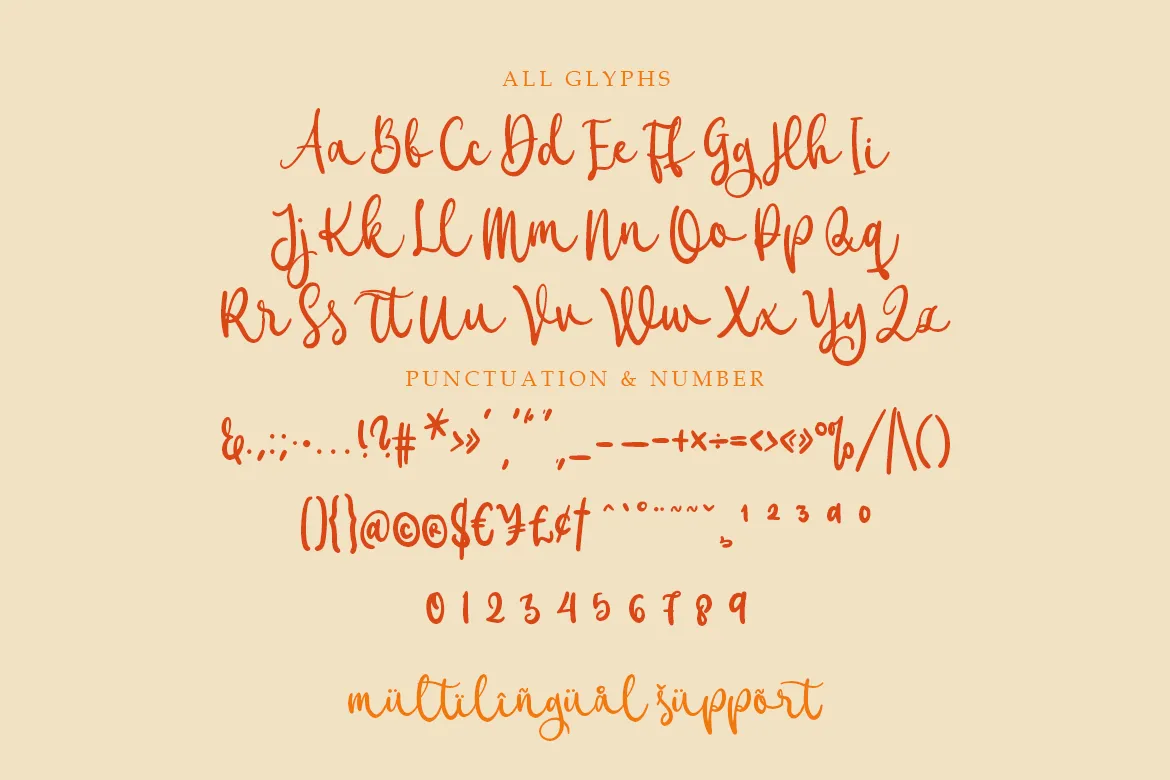 ALL GLYPHS
Aa Bb Cc Dd Ee Ff Gg Hh Ii
Jj Kk Ll Mm Nn Oo Pp Qq
Rr Ss Tt Uu Vv Ww Xx Yy Zz
PUNCTUATION & NUMBER
&.,:;·•...!?#*›»‚‘“”„_-—–+×÷=<>«»°%/|\()
(){}@©®$€¥£¢†^`°¨~~ˇ¸ 1 2 3 a o
0 1 2 3 4 5 6 7 8 9
mültïlîñgüål šüppõrt